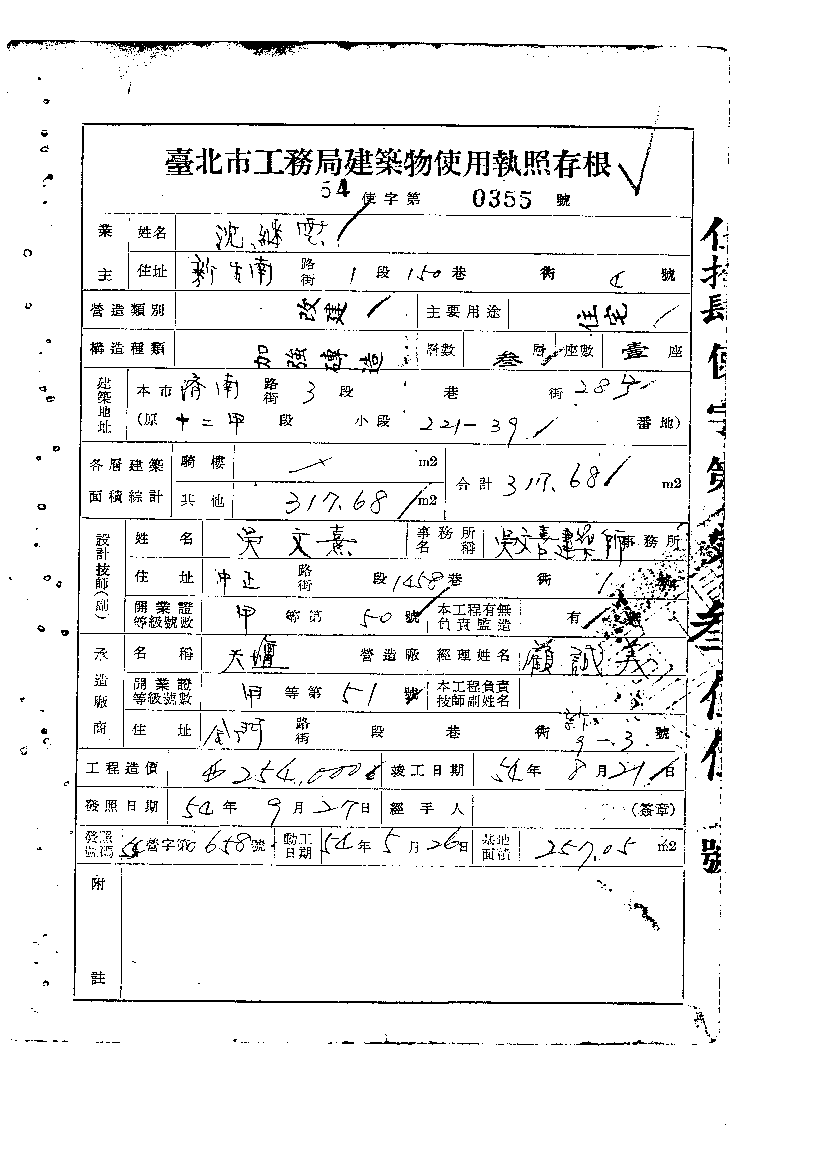 臺北市工務局建築物使用執照存根
54 使字第 0355 號
業主 姓名 沈繼雲
住址 新生南 路街 1 段 150 巷 衖 4 號
營造類別 改建 主要用途 住宅
構造種類 加強磚造 層數 叁 層 座數 壹 座
建築地址 本市 濟南 路街 3 段 巷 衖 28号
(原 十二甲 段 小段 221-39 番地)
各層建築面積綜計 騎樓 m2 合計 317.68 m2
其他 317.68 m2
設計技師(副) 姓名 吳文熹 事務所名稱 吳文熹建築師事務所
住址 中正 路街 段 1458 巷 衖 1 號
開業證等級號數 甲 等第 50 號 本工程有無負責監造 有
承造廠商 名稱 天壇 營造廠 經理姓名 顧誠義
開業證等級號數 甲 等第 51 號 本工程負責技師副姓名
住址 金門 路街 段 巷 衖 9-3 號
工程造價 254,000 竣工日期 54年 8月21日
發照日期 54年 9月27日 經手人 (簽章)
發照號碼 54營字第0658號 動工日期 54年5月26日 基地面積 257.05 m2
附註